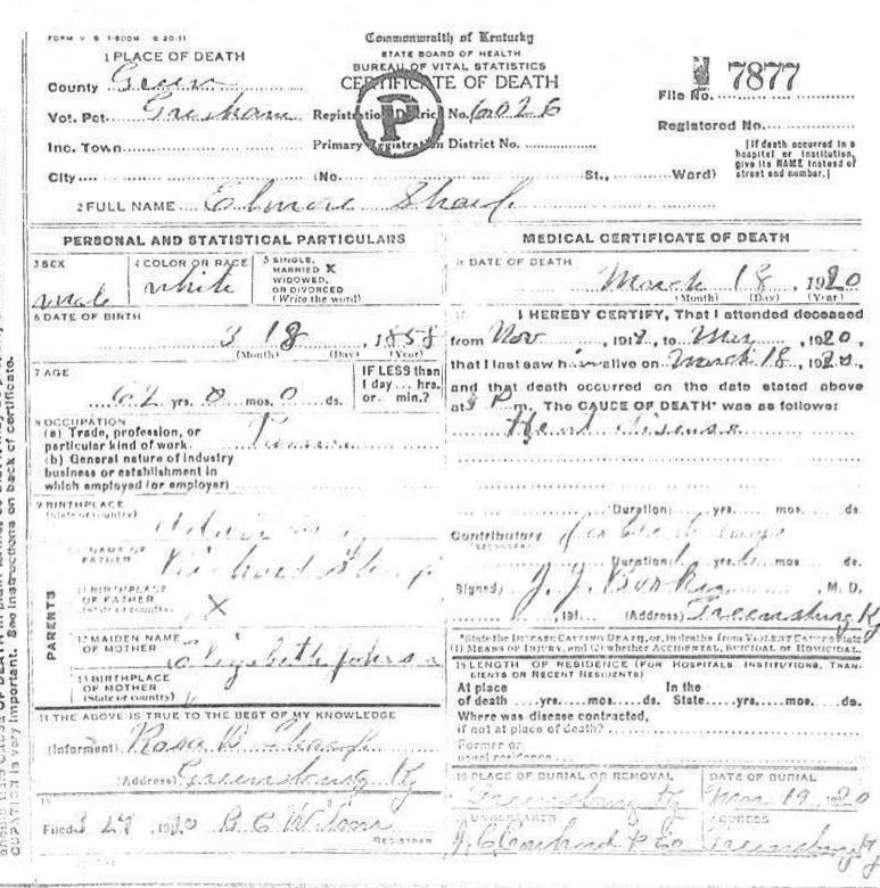 FORM V. S. 1-500M 6-20-11
Commonwealth of Kentucky
STATE BOARD OF HEALTH
BUREAU OF VITAL STATISTICS
CERTIFICATE OF DEATH
1 PLACE OF DEATH
County Green
Vot. Pct. Gresham Registration District No. 6026
File No. 7877
Registered No.
Inc. Town Primary Registration District No.
[If death occurred in a hospital or institution, give its NAME instead of street and number.]
City (No. St., Ward)
2 FULL NAME Elmore Sharp
P
PERSONAL AND STATISTICAL PARTICULARS
3 SEX
male
4 COLOR OR RACE
white
5 SINGLE,
MARRIED X
WIDOWED,
OR DIVORCED
(Write the word)
6 DATE OF BIRTH
3 18, 1858
(Month) (Day) (Year)
7 AGE
62 yrs. 0 mos. 0 ds.
IF LESS than
1 day ... hrs.
or min.?
8 OCCUPATION
(a) Trade, profession, or
particular kind of work.
(b) General nature of industry
business or establishment in
which employed (or employer)
9 BIRTHPLACE
(State or country)
10 NAME OF
FATHER Richard Sharp
11 BIRTHPLACE
OF FATHER
(State or country) X
PARENTS
12 MAIDEN NAME
OF MOTHER Elizabeth
13 BIRTHPLACE
OF MOTHER
(State or country)
14 THE ABOVE IS TRUE TO THE BEST OF MY KNOWLEDGE
(Informant) Rosa B Sharp
(Address) Greensburg Ky
15
Filed 3 29, 1920
REGISTRAR
MEDICAL CERTIFICATE OF DEATH
16 DATE OF DEATH
March 18, 1920
(Month) (Day) (Year)
17 I HEREBY CERTIFY, That I attended deceased
from Nov, 191 , to , 1920,
that I last saw him alive on March 18, 1920,
and that death occurred on the date stated above
at P m. The CAUSE OF DEATH* was as follows:
Heart disease
(Duration) yrs. mos. ds.
Contributory
(SECONDARY)
(Duration) yrs. mos ds.
(Signed) J. J. , M. D.
, 191 (Address) Greensburg Ky
*State the DISEASE CAUSING DEATH, or, in deaths from VIOLENT CAUSES state
(1) MEANS OF INJURY, and (2) whether ACCIDENTAL, SUICIDAL or HOMICIDAL.
18 LENGTH OF RESIDENCE (FOR HOSPITALS, INSTITUTIONS, TRANSIENTS OR RECENT RESIDENTS)
At place In the
of death yrs. mos. ds. State yrs. mos. ds.
Where was disease contracted,
if not at place of death?
Former or
usual residence
19 PLACE OF BURIAL OR REMOVAL
Greensburg Ky
DATE OF BURIAL
Mar 19, 1920
20 UNDERTAKER
ADDRESS
Greensburg Ky
CUPATION is very important. See instructions on back of certificate.